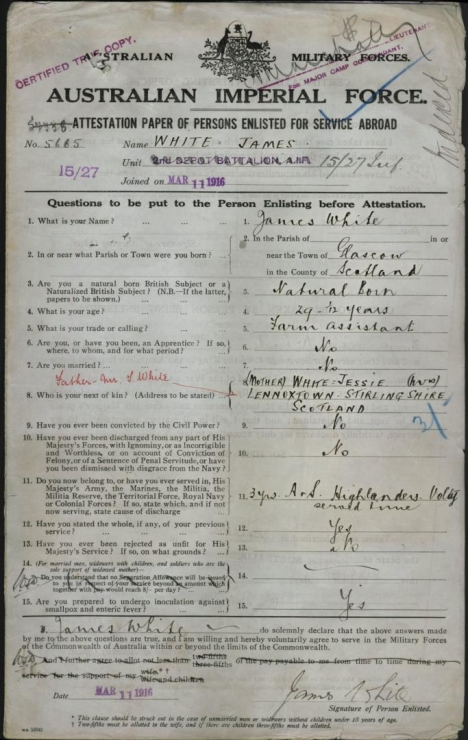 CERTIFIED TRUE COPY.
AUSTRALIAN MILITARY FORCES.
LIEUTENANT,
for MAJOR CAMP COMMANDANT,
AUSTRALIAN IMPERIAL FORCE.
ATTESTATION PAPER OF PERSONS ENLISTED FOR SERVICE ABROAD
No. 5665 Name WHITE JAMES.
Unit 2nd DEPOT BATTALION, A.I.F. 15/27 Inf
15/27
Joined on MAR 11 1916
Questions to be put to the Person Enlisting before Attestation.
1. What is your Name? ... ... ... 1. James White
2. In or near what Parish or Town were you born? ... 2. In the Parish of in or
near the Town of Glascow
in the County of Scotland
3. Are you a natural born British Subject or a
Naturalized British Subject? (N.B.—If the latter,
papers to be shown.) ... 3. Natural Born
4. What is your age? ... ... ... 4. 29 6/12 years
5. What is your trade or calling? ... ... 5. Farm Assistant
6. Are you, or have you been, an Apprentice? If so,
where, to whom, and for what period? ... 6. No
7. Are you married? ... ... ... 7. No
Father - Mr. J White
8. Who is your next of kin? (Address to be stated) 8. (MOTHER) WHITE - JESSIE (MRS)
LENNOXTOWN - STIRLINGSHIRE
SCOTLAND
9. Have you ever been convicted by the Civil Power? 9. No
10. Have you ever been discharged from any part of His
Majesty's Forces, with Ignominy, or as Incorrigible
and Worthless, or on account of Conviction of
Felony, or of a Sentence of Penal Servitude, or have
you been dismissed with disgrace from the Navy? 10. No
11. Do you now belong to, or have you ever served in, His
Majesty's Army, the Marines, the Militia, the
Militia Reserve, the Territorial Force, Royal Navy
or Colonial Forces? If so, state which, and if not
now serving, state cause of discharge 11. 3 yrs. A & S. Highlanders
time
12. Have you stated the whole, if any, of your previous
service? ... 12. Yes
13. Have you ever been rejected as unfit for His
Majesty's Service? If so, on what grounds? 13. No
14. (For married men, widowers with children, and soldiers who are the
sole support of widowed mother)—
Do you understand that no Separation Allowance will be issued
to you in respect of your service beyond an amount which
together with pay would reach 8/- per day? 14.
15. Are you prepared to undergo inoculation against
smallpox and enteric fever? ... 15. Yes
I, James White do solemnly declare that the above answers made
by me to the above questions are true, and I am willing and hereby voluntarily agree to serve in the Military Forces
of the Commonwealth of Australia within or beyond the limits of the Commonwealth.
And I further agree to allot not less than two-fifths three-fifths of the pay payable to me from time to time during my
service for the support of my wife wife and children
Date MAR 11 1916 James White
Signature of Person Enlisted.
* This clause should be struck out in the case of unmarried men or widowers without children under 18 years of age.
† Two-fifths must be allotted to the wife, and if there are children three-fifths must be allotted.